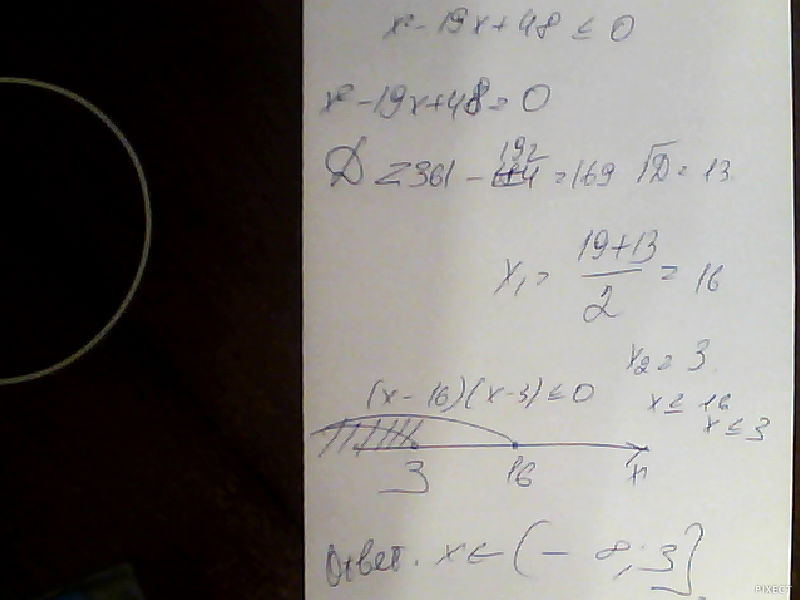 x² - 19x + 48 ≤ 0
x² - 19x + 48 = 0
D = 361 - 192 = 169 √D = 13
x₁ = (19 + 13) / 2 = 16
x₂ = 3
(x - 16)(x - 3) ≤ 0
x ≤ 16
x ≤ 3
3 16 x
Ответ. x ∈ (-∞; 3]
PIXECT